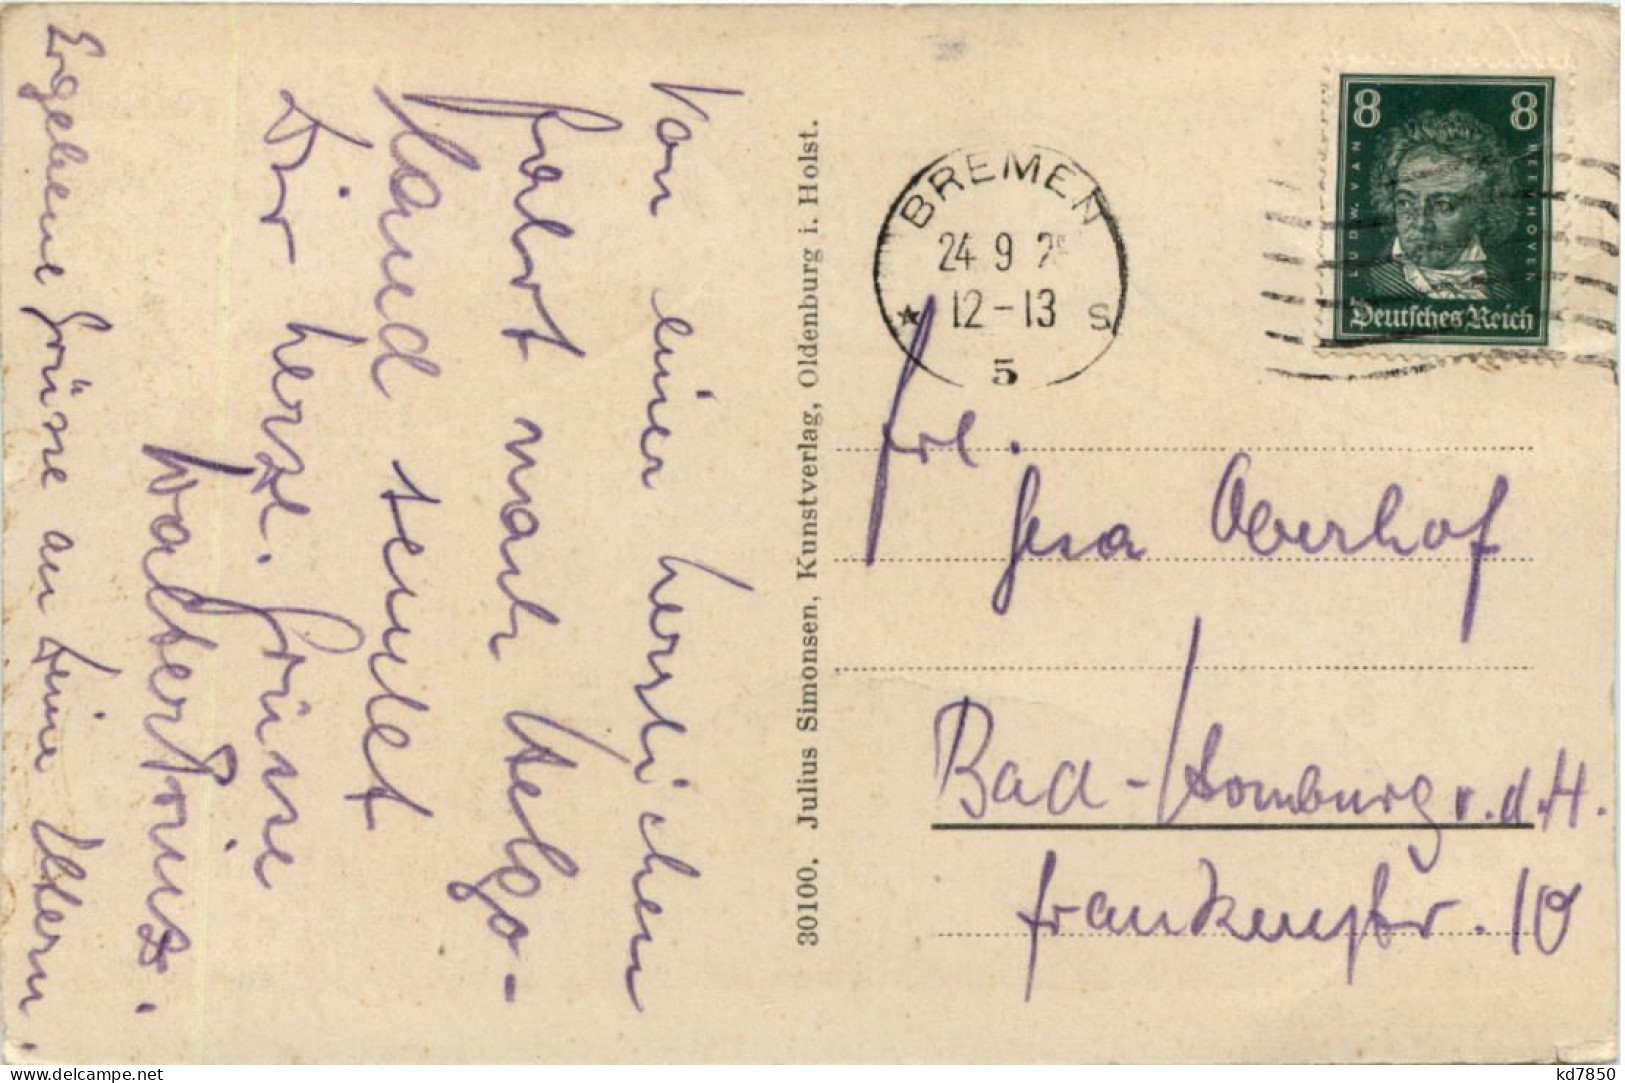 Von einer herrlichen
Fahrt nach Helgo-
land sendet
Dir herzl. Grüsse
Walter
Ergebene Grüsse an Deine Eltern.
30100. Julius Simonsen, Kunstverlag, Oldenburg i. Holst.
BREMEN
24 9 2
12-13 S
5
8 8
LUDW. VAN BEETHOVEN
Deutsches Reich
Frl.
Gesa Oberhof
Bad-Homburg v.d.H.
Frankenstr. 10
kd7850